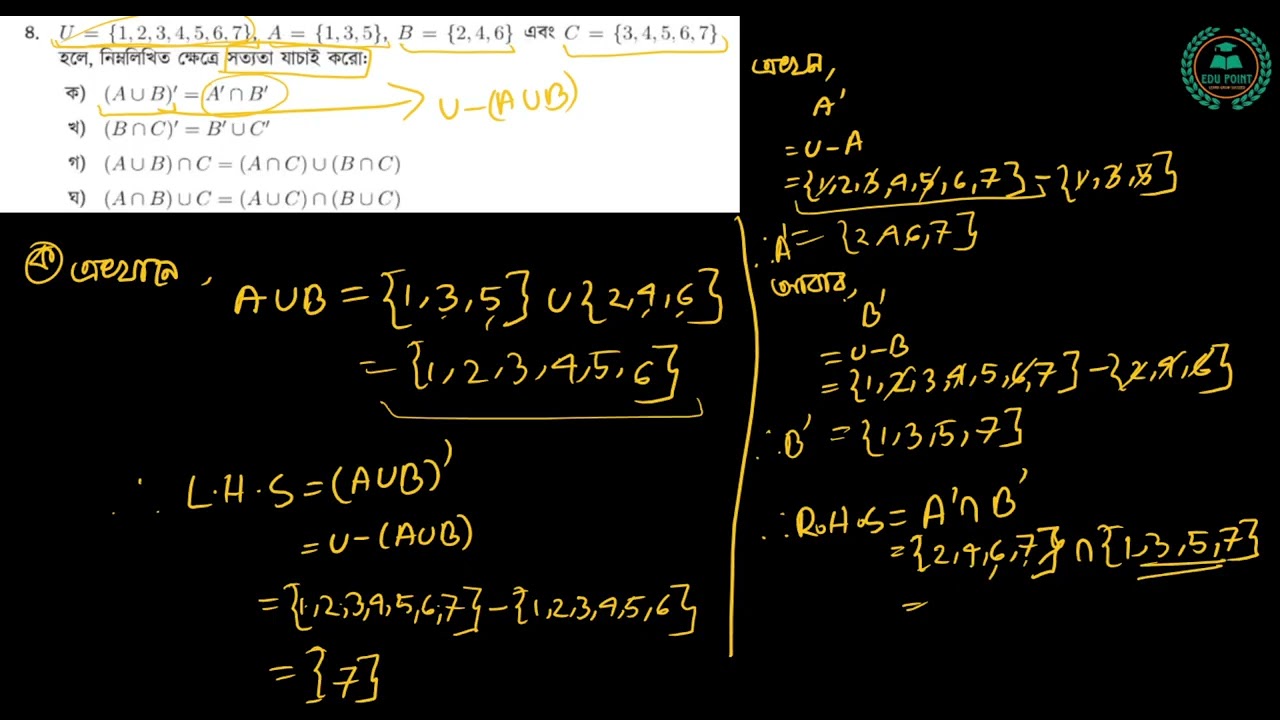 ৪. U = {1,2,3,4,5,6,7}, A = {1,3,5}, B = {2,4,6} এবং C = {3,4,5,6,7}
হলে, নিম্নলিখিত ক্ষেত্রে সত্যতা যাচাই করো:
ক) (A ∪ B)′ = A′ ∩ B′
U-(A∪B)
খ) (B ∩ C)′ = B′ ∪ C′
গ) (A ∪ B) ∩ C = (A ∩ C) ∪ (B ∩ C)
ঘ) (A ∩ B) ∪ C = (A ∪ C) ∩ (B ∪ C)
ক এখানে,
A∪B = {1,3,5} ∪ {2,4,6}
= {1,2,3,4,5,6}
∴ L.H.S = (A∪B)′
= U-(A∪B)
= {1,2,3,4,5,6,7} - {1,2,3,4,5,6}
= {7}
এখন,
A′
= U-A
= {1,2,3,4,5,6,7} - {1,3,5}
∴ A′ = {2,4,6,7}
আবার,
B′
= U-B
= {1,2,3,4,5,6,7} - {2,4,6}
∴ B′ = {1,3,5,7}
∴ R.H.S = A′∩B′
= {2,4,6,7} ∩ {1,3,5,7}
=
EDU POINT
LEARN GROW SUCCEED